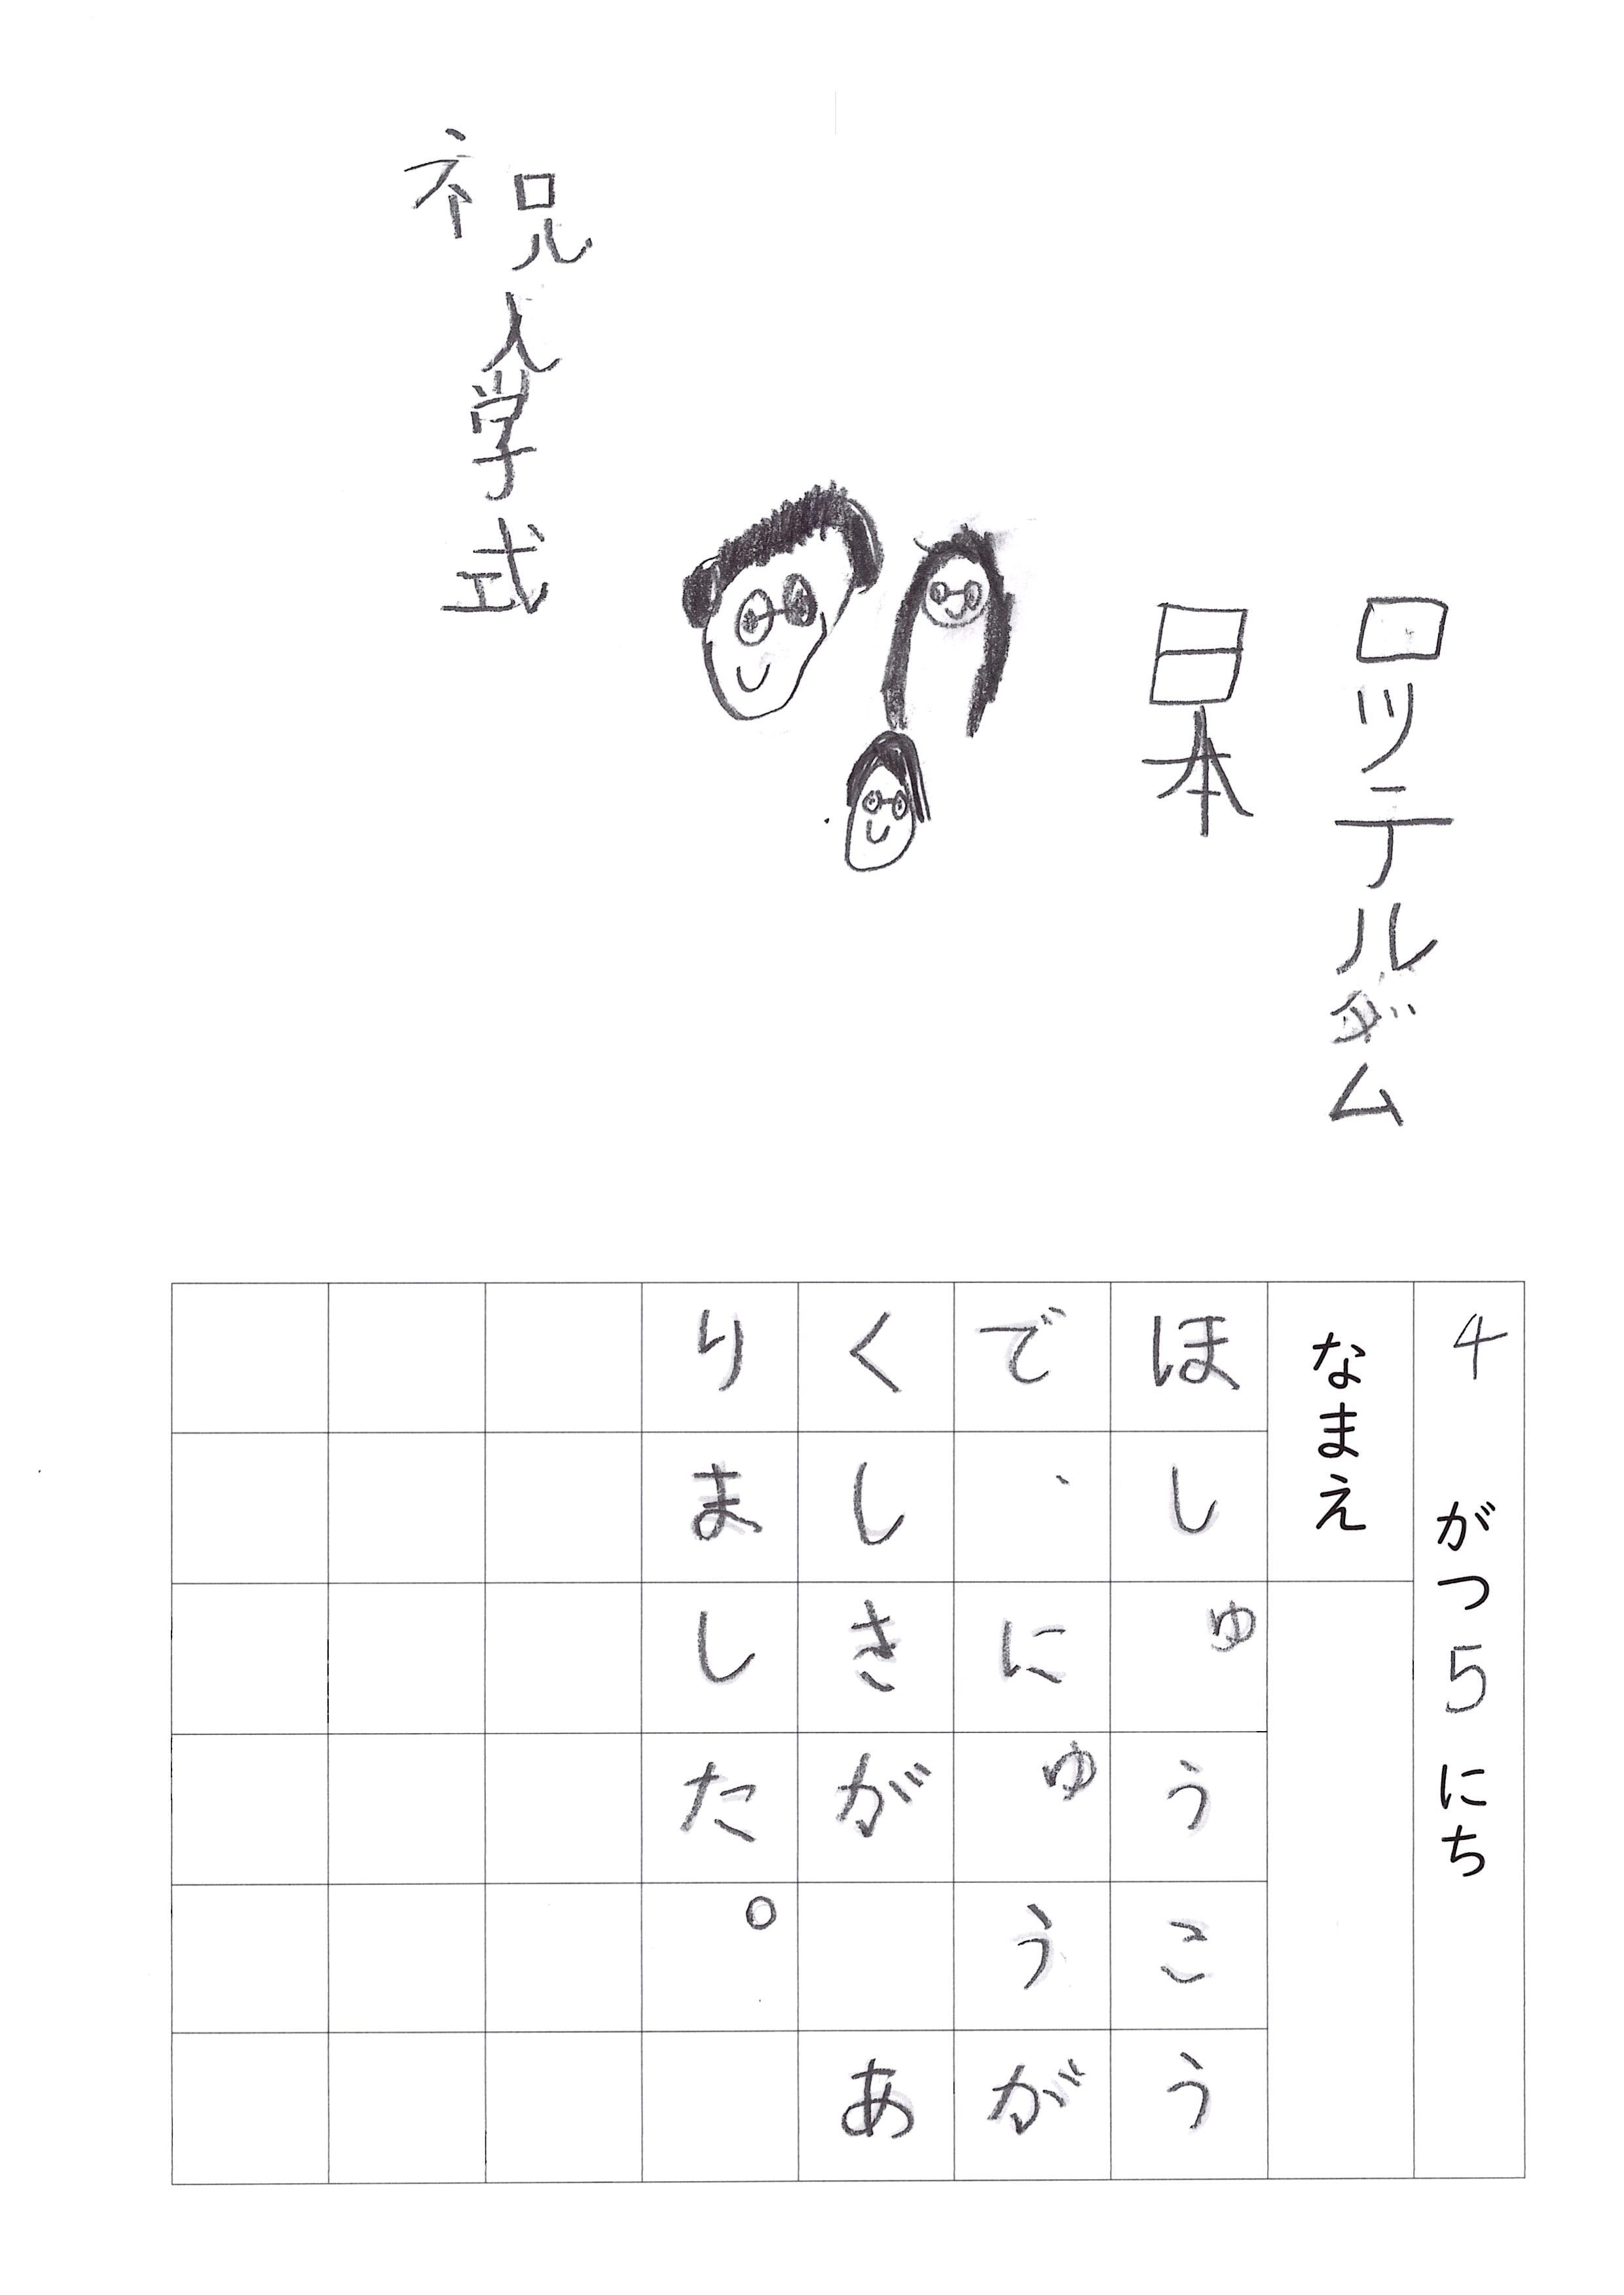 ロッテルダム
日本
祝入学式
4がつ5にち
なまえ
ほしゅうこう
で、にゅうが
くしきが あ
りました。